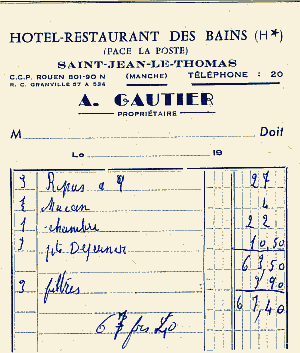 HOTEL-RESTAURANT DES BAINS (H*)
(FACE LA POSTE)
SAINT-JEAN-LE-THOMAS
C.C.P. ROUEN 801-90 N (MANCHE) TÉLÉPHONE : 20
R. C. GRANVILLE 57 A 534
A. GAUTIER
PROPRIÉTAIRE
M Doit
Le 19
3 Repas à 9 27
Macon 4
1 chambre 22
3 pts Dejeuner 10,50
63,50
3 filtres 3 90
67,40
67 frs 40